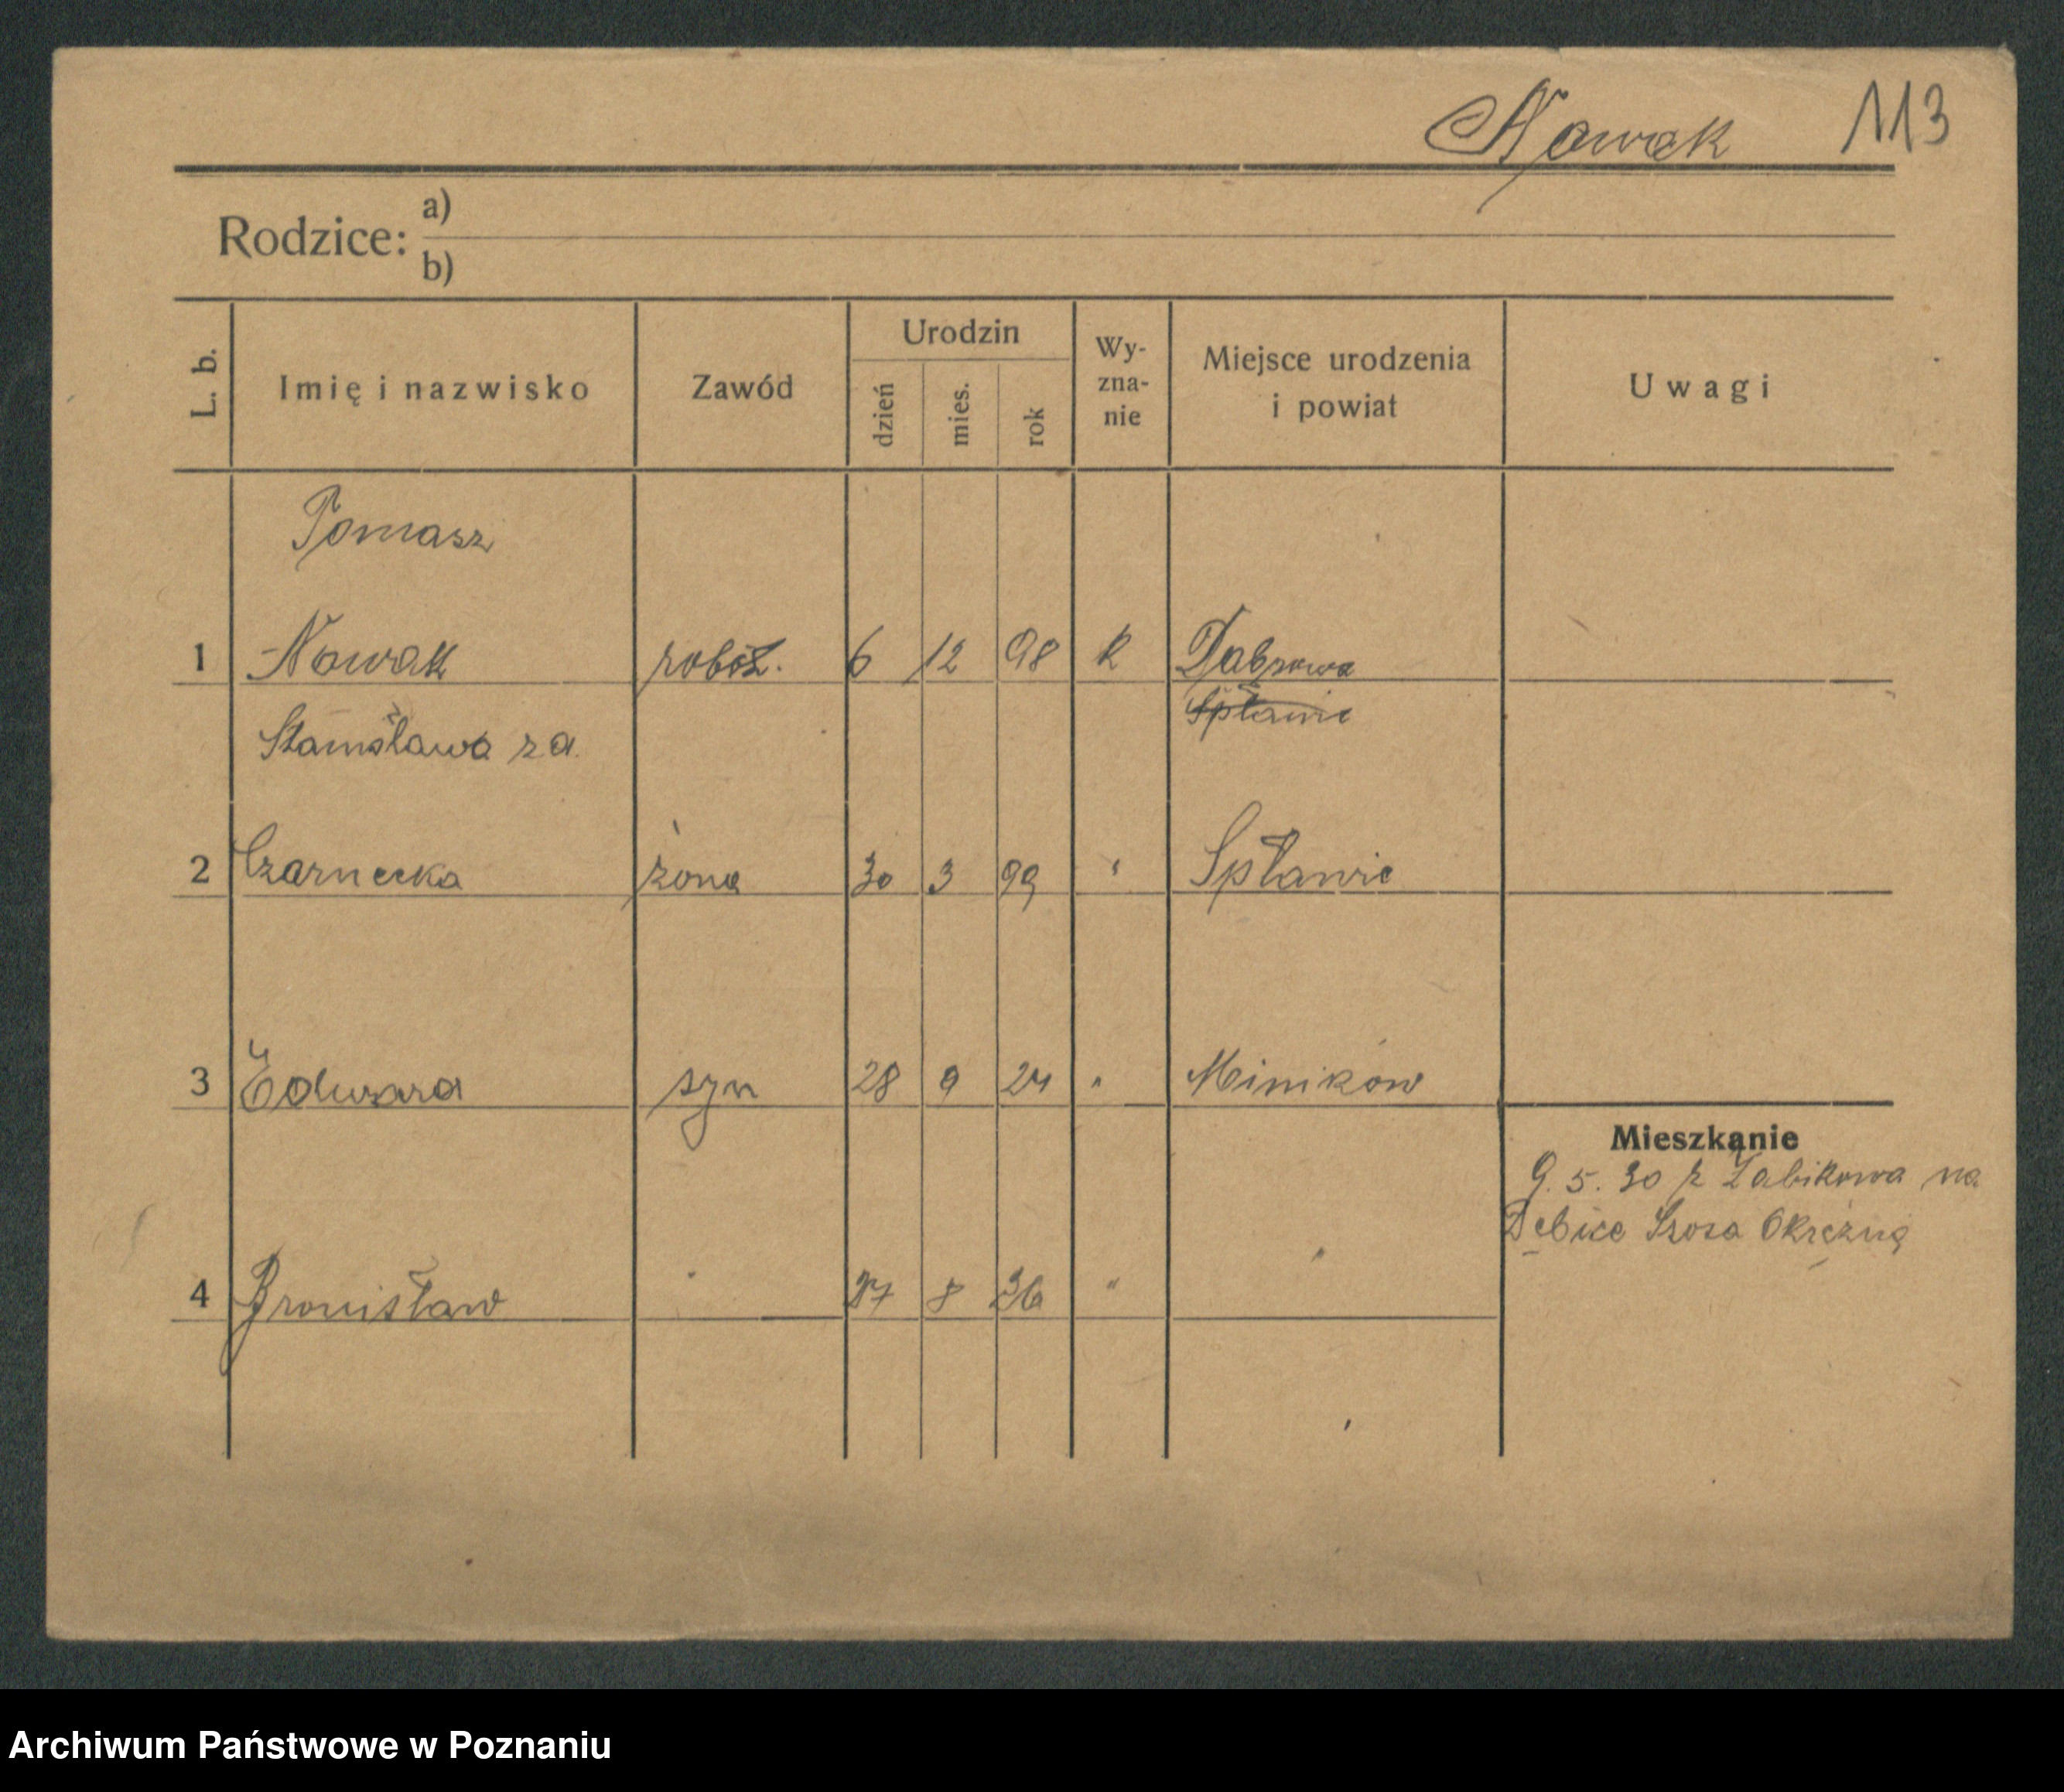 Nowak 113
Rodzice: a)
b)
L. b. Imię i nazwisko Zawód Urodzin dzień mies. rok Wy-zna-nie Miejsce urodzenia i powiat Uwagi
Tomasz
1 Nowak robot. 6 12 98 k Dąbrowa
Spławie
Stanisława z d.
2 Czarnecka żona 30 3 99 " Spławie
3 Edward syn 28 9 24 " Miników
Mieszkanie
9. 5. 30 z Żabikowa na
Dębiec Szosa Okrężna
4 Bronisław " 8 " "
Archiwum Państwowe w Poznaniu